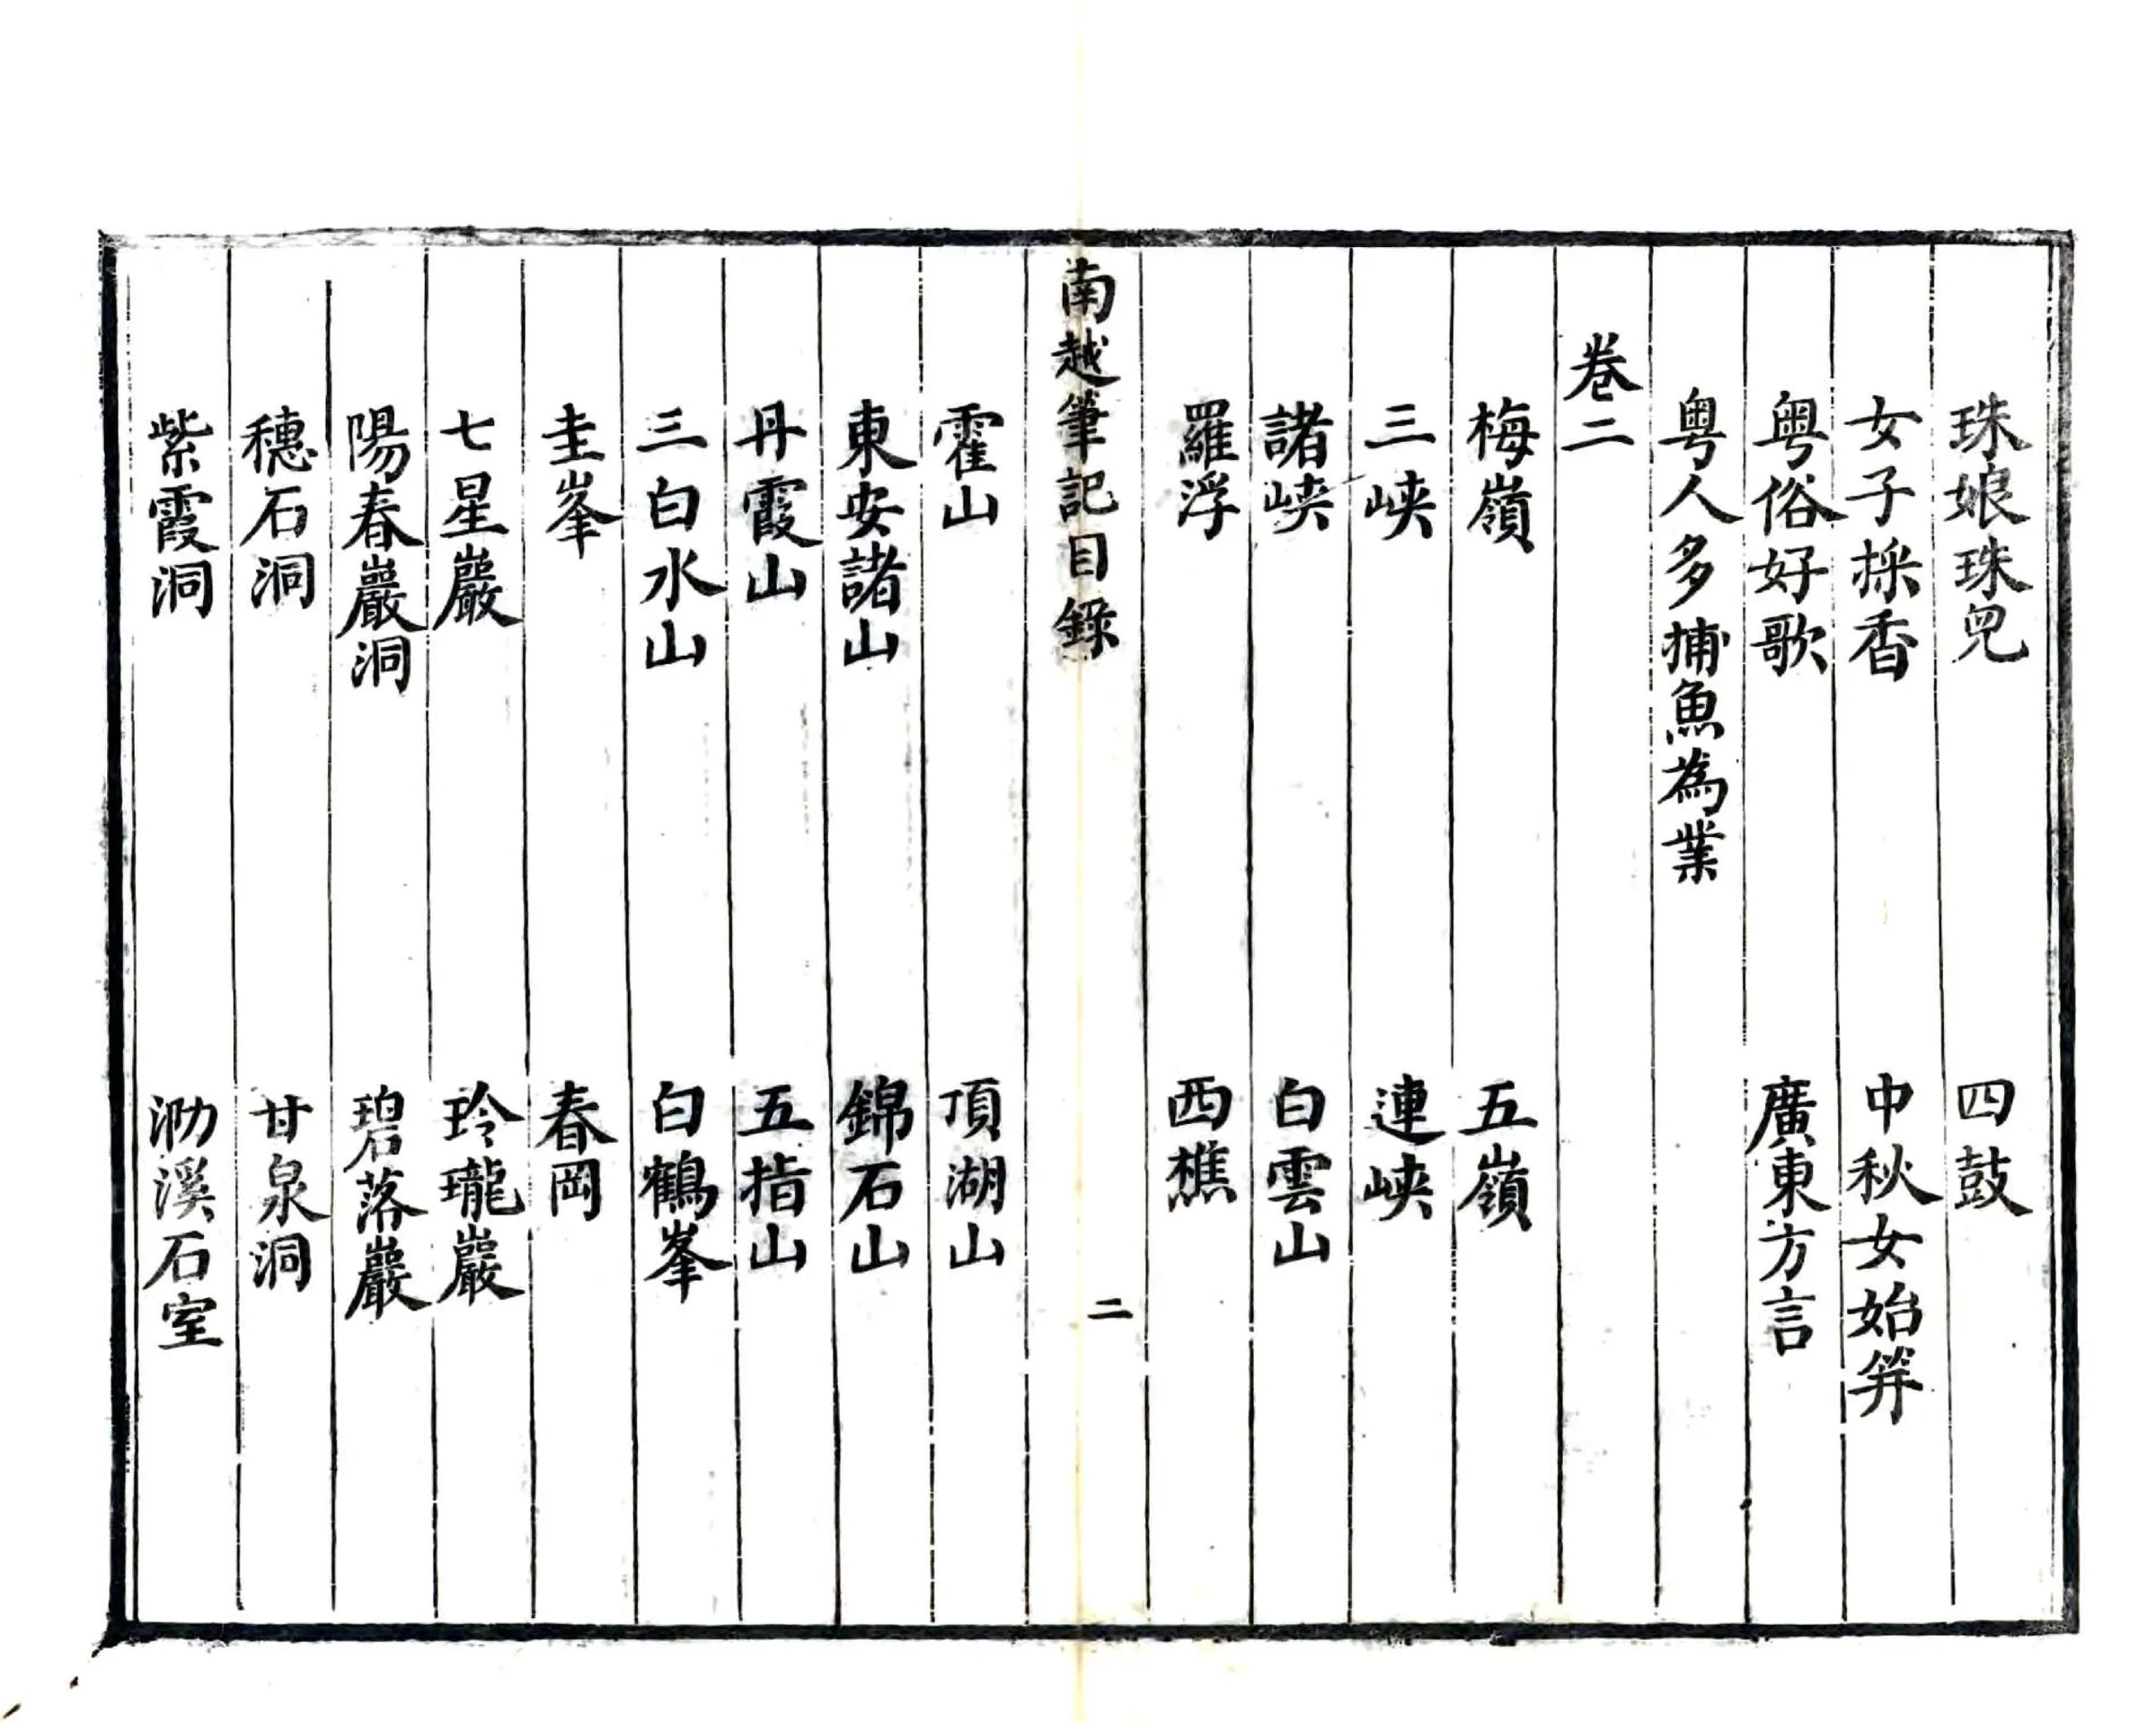 珠娘珠兒　四鼓
女子採香　中秋女始笄
粤俗好歌　廣東方言
粤人多捕魚為業
卷二
梅嶺　五嶺
三峽　連峽
諸峽　白雲山
羅浮　西樵
南越筆記目錄　二
霍山　頂湖山
東安諸山　錦石山
丹霞山　五指山
三白水山　白鶴峯
圭峯　春岡
七星巖　玲瓏巖
陽春巖洞　碧落巖
穗石洞　甘泉洞
紫霞洞　泐溪石室